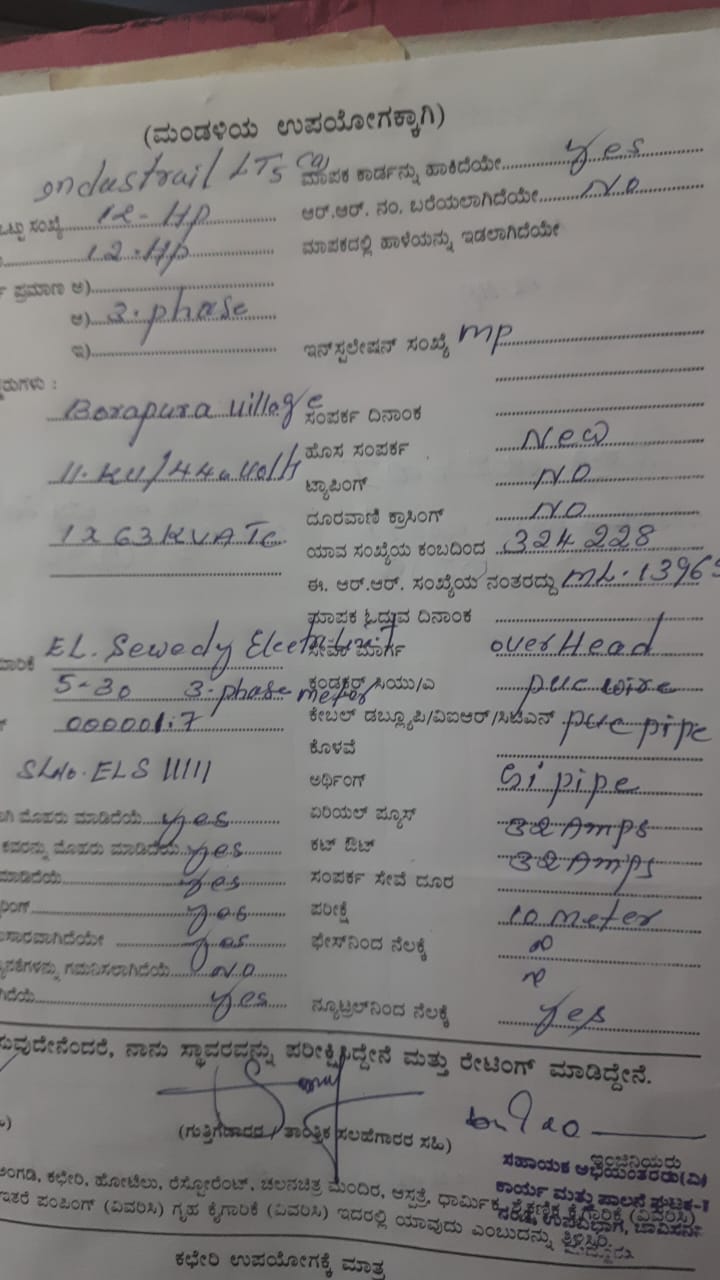 (ಮಂಡಳಿಯ ಉಪಯೋಗಕ್ಕಾಗಿ)
industrail LT5 (a) ಮಾಪಕ ಕಾರ್ಡನ್ನು ಹಾಕಿದೆಯೇ Yes
ಒಟ್ಟು ಸಂಖ್ಯೆ 12-HP ಆರ್.ಆರ್. ನಂ. ಬರೆಯಲಾಗಿದೆಯೇ No
12-HP ಮಾಪಕದಲ್ಲಿ ಹಾಳೆಯನ್ನು ಇಡಲಾಗಿದೆಯೇ
ಪ್ರಮಾಣ ಅ)
ಆ) 3-phase
ಇ) ಇನ್‌ಸ್ಪಲೇಷನ್ ಸಂಖ್ಯೆ MP
Borapura Village ಸಂಪರ್ಕ ದಿನಾಂಕ
ಹೊಸ ಸಂಪರ್ಕ New
11-KV/440 Volts ಟ್ಯಾಪಿಂಗ್ NO
ದೂರವಾಣಿ ಕ್ರಾಸಿಂಗ್ NO
1x63KVA Tc ಯಾವ ಸಂಖ್ಯೆಯ ಕಂಬದಿಂದ 324228
ಈ. ಆರ್.ಆರ್. ಸಂಖ್ಯೆಯ ನಂತರದ್ದು ML-1396
ಮಾಪಕ ಓದುವ ದಿನಾಂಕ
EL. Sewedy ಸೇವಾ ಮಾರ್ಗ overHead
5-30 3-phase meter ಕಂಡಕ್ಟರ್ ಸಿಯು/ಎ pvc wire
000001.7 ಕೇಬಲ್ ಡಬ್ಲ್ಯೂಪಿ/ವಿಐಆರ್/ಸಿಟಿಎನ್ pvc pipe
ಕೊಳವೆ
SLNo. ELS 11111 ಅರ್ಥಿಂಗ್ Gi pipe
ಮೊಹರು ಮಾಡಿದೆಯೆ Yes ಏರಿಯಲ್ ಪ್ಯೂಸ್ 32 Amps
ಕವರನ್ನು ಮೊಹರು ಮಾಡಿದೆಯೆ Yes ಕಟ್ ಔಟ್ 32 Amps
ಮಾಡಿದೆಯೆ Yes ಸಂಪರ್ಕ ಸೇವೆ ದೂರ
Yes ಪರೀಕ್ಷೆ 10 meter
Yes ಫೇಸ್‌ನಿಂದ ನೆಲಕ್ಕೆ
ಗಮನಿಸಲಾಗಿದೆಯೆ No
Yes ನ್ಯೂಟ್ರಲ್‌ನಿಂದ ನೆಲಕ್ಕೆ Yes
ನಾನು ಸ್ಥಾವರವನ್ನು ಪರೀಕ್ಷಿಸಿದ್ದೇನೆ ಮತ್ತು ರೇಟಿಂಗ್ ಮಾಡಿದ್ದೇನೆ.
(ಗುತ್ತಿಗೆದಾರರ / ತಾಂತ್ರಿಕ ಸಲಹೆಗಾರರ ಸಹಿ)
ಇಂಜಿನಿಯರು
ಸಹಾಯಕ ಅಭಿಯಂತರರು(ವಿ)
ಕಾರ್ಯ ಮತ್ತು ಪಾಲನೆ ಘಟಕ-
ಅಂಗಡಿ, ಕಛೇರಿ, ಹೋಟೆಲು, ರೆಸ್ಟೋರೆಂಟ್, ಚಲನಚಿತ್ರ ಮಂದಿರ, ಆಸ್ಪತ್ರೆ, ಧಾರ್ಮಿಕ, ಶೈಕ್ಷಣಿಕ ಕೈಗಾರಿಕೆ (ವಿವರಿಸಿ)
ಇತರೆ ಪಂಪಿಂಗ್ (ವಿವರಿಸಿ) ಗೃಹ ಕೈಗಾರಿಕೆ (ವಿವರಿಸಿ) ಇದರಲ್ಲಿ ಯಾವುದು ಎಂಬುದನ್ನು ತಿಳಿಸಿರಿ.
ಕಛೇರಿ ಉಪಯೋಗಕ್ಕೆ ಮಾತ್ರ